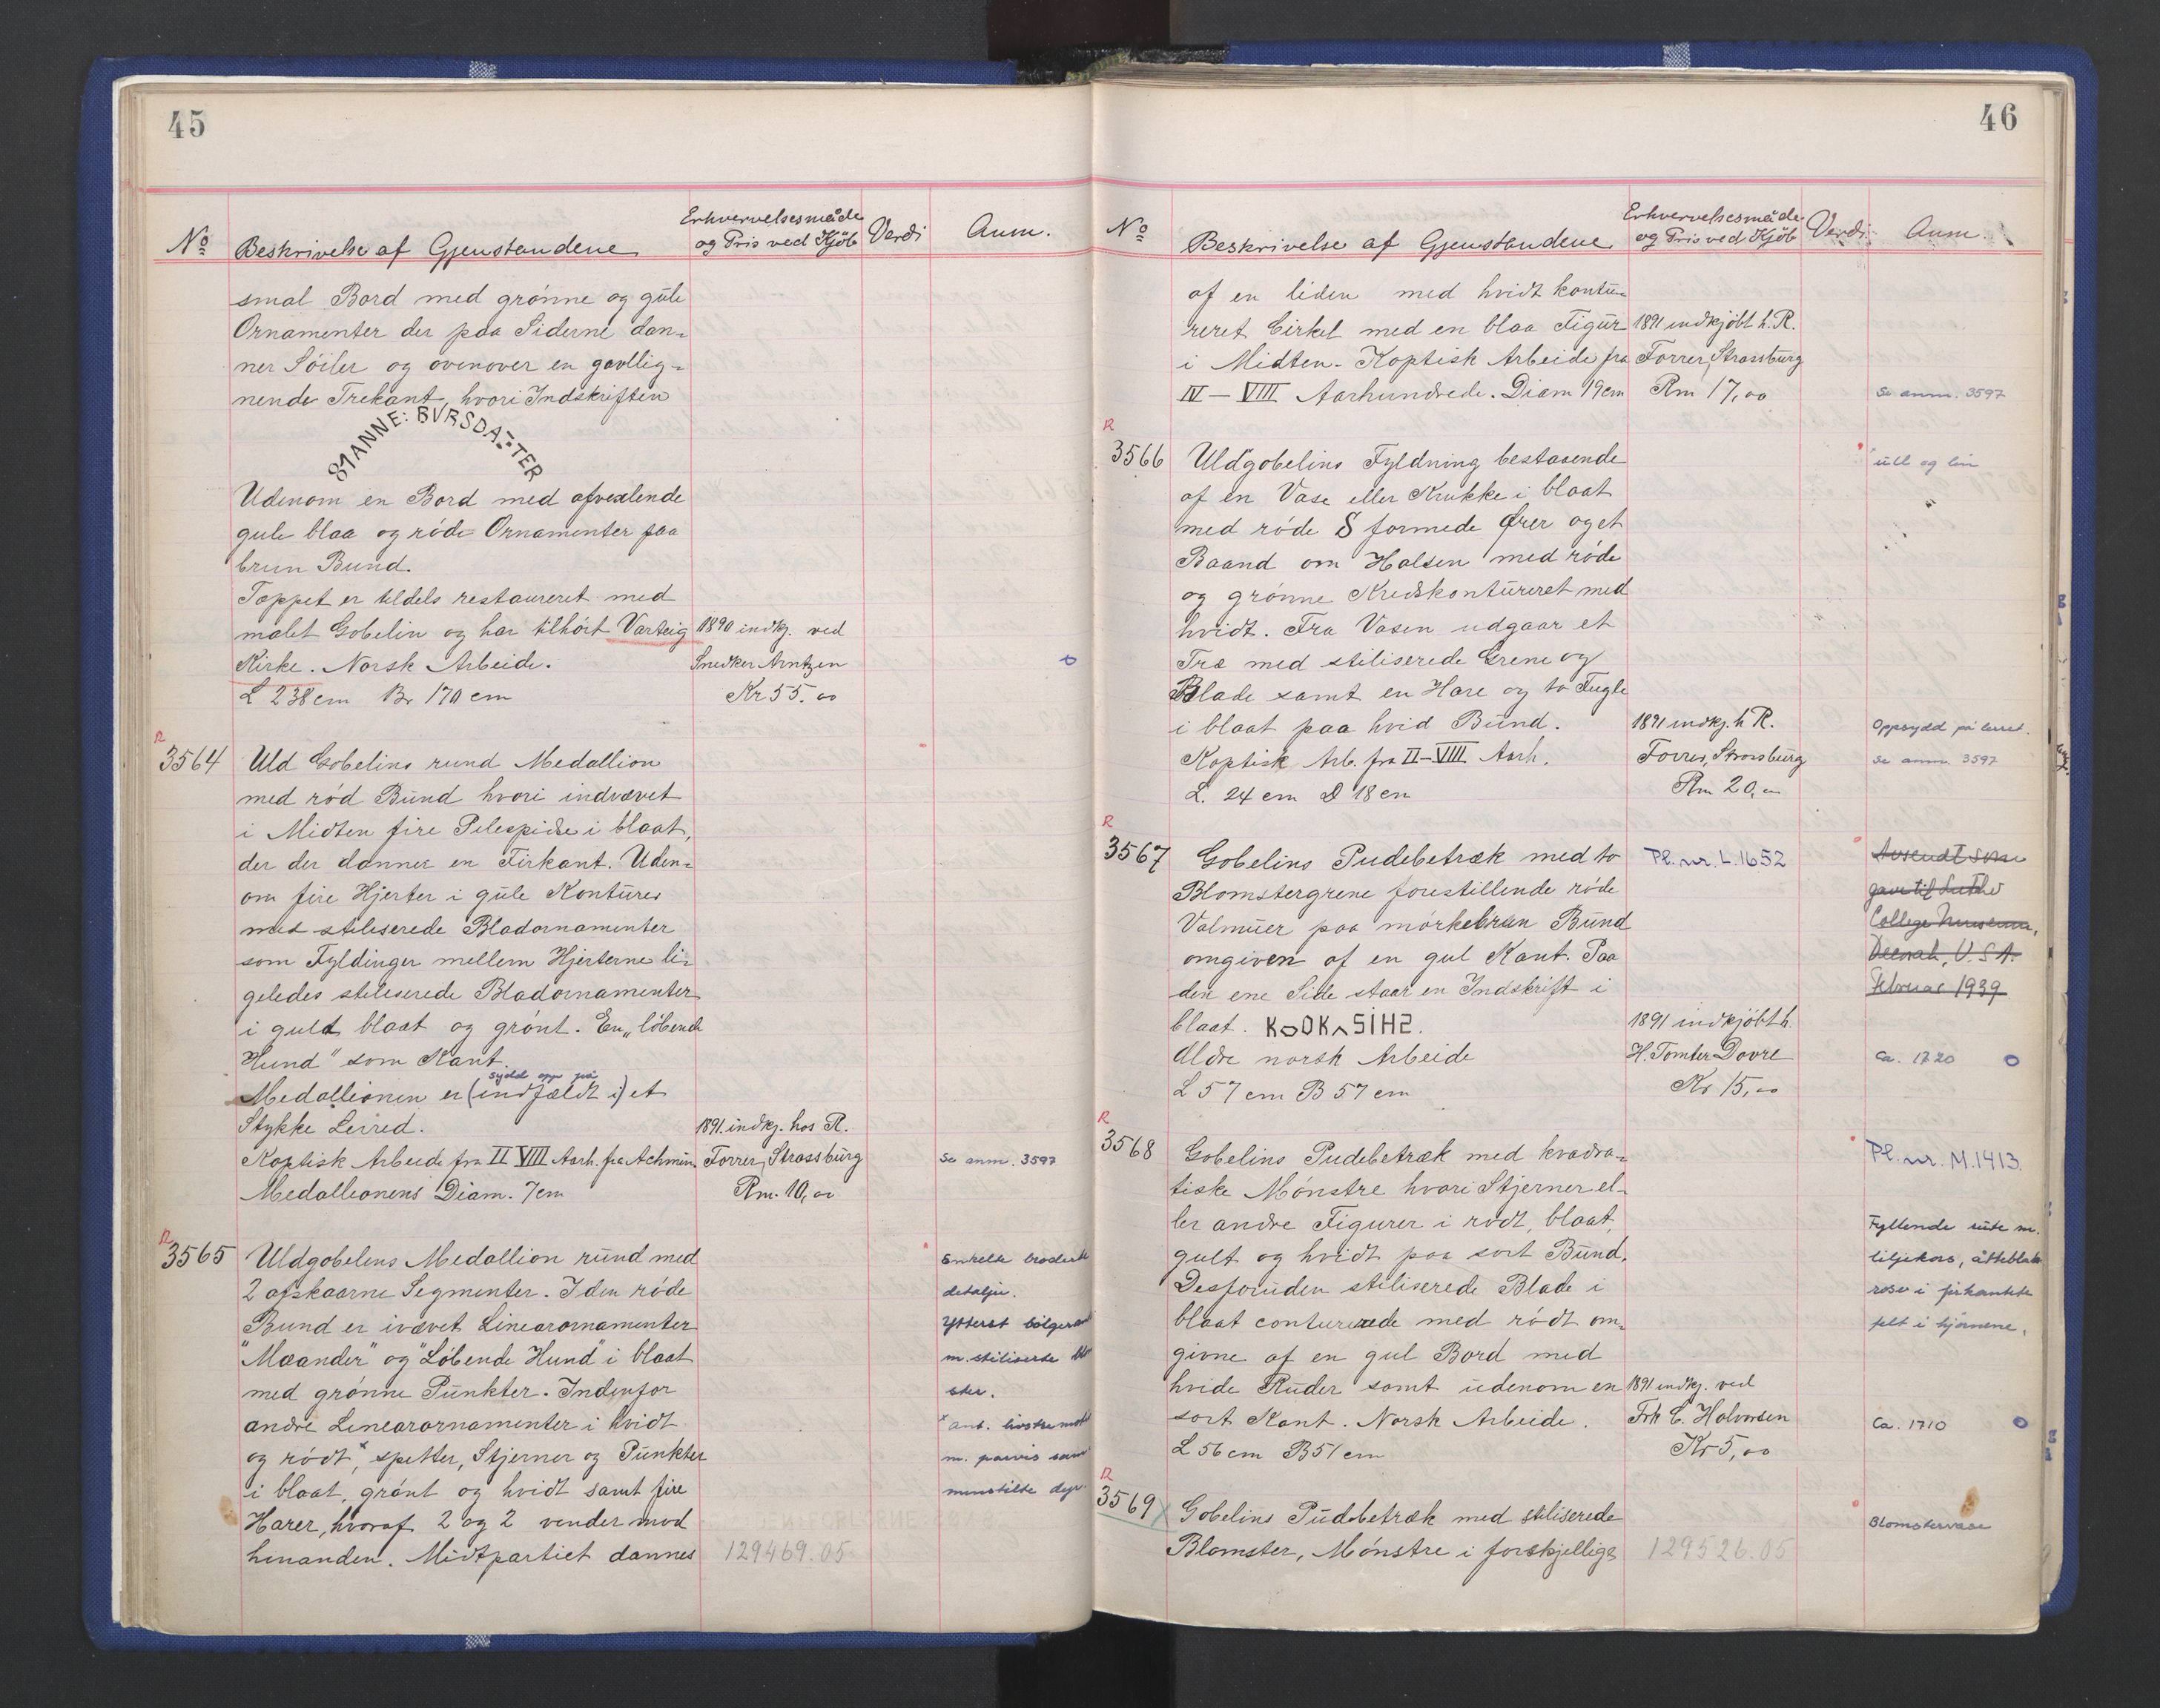 45
No
Beskrivelse af Gjenstandene
Erhvervelsesmåde
og Pris ved Kjöb
Verdi
Anm.
smal Bord med grønne og gule
Ornamenter der paa Siderne dan-
ner Söiler og ovenover en gavllig-
nende Trekant, hvori Indskriften
81 ANNE: BVRSDATTER
Udenom en Bord med afvexlende
gule blaa og röde Ornamenter paa
brun Bund.
Teppet er tildels restaureret med
malet Gobelin og har tilhört Varteig 1890 indkj. ved
Kirke. Norsk Arbeide. Snedker Arntzen o
L 238 cm Br 170 cm Kr 55.00
R
3564 Uld Gobelins rund Medallion
med röd Bund hvori indvævet
i Midten fire Pilespidse i blaat,
der der danner en Firkant. Uden-
om fire Hjerter i gule Konturer
med stiliserede Bladornamenter
som Fyldinger mellem Hjerterne li-
geledes stiliserede Bladornamenter
i gult blaat og grönt. En "löbende
Hund" som Kant.
sydd opp på
Medallionen er (indfældt i) et
Stykke Lerred. 1891 indkj. hos R.
Koptisk Arbeide fra II VIII Aarh. fra Achmin Forrer, Strassburg Se anm. 3597
Medallionens Diam. 7 cm Rm. 10,00
R
3565 Uldgobelins Medallion rund med Enkelte broderte
2 afskaarne Segmenter. I den röde detaljer.
Bund er ivævet Linearornamenter Ytterst bölgerand
"Mæander" og "Löbende Hund" i blaat m. stiliserte
med grønne Punkter. Indenfor
andre Linearornamenter i hvidt
og rödt, x spetter, Stjerner og Punkter m. parvis
i blaat, grönt og hvidt samt fire
Harer, hvoraf 2 og 2 vender mod
hinanden. Midtpartiet dannes 129469.05
46
No
Beskrivelse af Gjenstandene
Erhvervelsesmåde
og Pris ved Kjöb
Verdi
Anm.
af en liden med hvidt kontu-
reret Cirkel med en blaa Figur 1891 indkjöbt h. R.
i Midten. Koptisk Arbeide fra Forrer, Strassburg
IV – VIII Aarhundrede. Diam 19 cm Rm 17,00 Se anm. 3597
R
3566 Uldgobelins Fyldning bestaaende ull og lin
af en Vase eller Krukke i blaat
med röde S formede Ører og et
Baand om Halsen med röde
og grønne Kredskontureret med
hvidt. Fra Vasen udgaar et
Træ med stiliserede Grene og
Blade samt en Hare og to Fugle
i blaat paa hvid Bund. 1891 indkj. h R. Oppsydd på lerret.
Koptisk Arb. fra II – VIII Aarh. Forrer, Strassburg Se anm. 3597
L. 24 cm B 18 cm Rm 20,00
R
3567 Gobelins Pudebetræk med to Pl. nr. L.1652 Avsendt som
Blomstergrene forestillende röde gave til Luther
Valmuer paa mörkebrun Bund College Museum,
omgiven af en gul Kant. Paa Decorah, U.S.A.
den ene Side staar en Indskrift i Februar 1939
blaat. 1891 indkjöbt h.
Ældre norsk Arbeide H. Tomter Dovre Ca. 1720 o
L 57 cm B 57 cm Kr 15,00
R
3568 Gobelins Pudebetræk med kvadra- Pl. nr. M.1413.
tiske Mönstre hvori Stjerner el-
ler andre Figurer i rödt, blaat, Fyllende rute m.
gult og hvidt paa sort Bund. liljekors, åtteblads
Desforuden stiliserede Blade i roser i firkantete
blaat conturerede med rödt om- felt i hjørnene.
givne af en gul Bord med
hvide Ruder samt udenom en 1891 indkj. ved
sort Kant. Norsk Arbeide. Frk C. Halvorsen Ca. 1710 o
L 56 cm B 51 cm Kr 5,00
R
3569 x Gobelins Pudebetræk med stiliserede Blomstervase
Blomster, Mönstre i forskjellige 129526.05